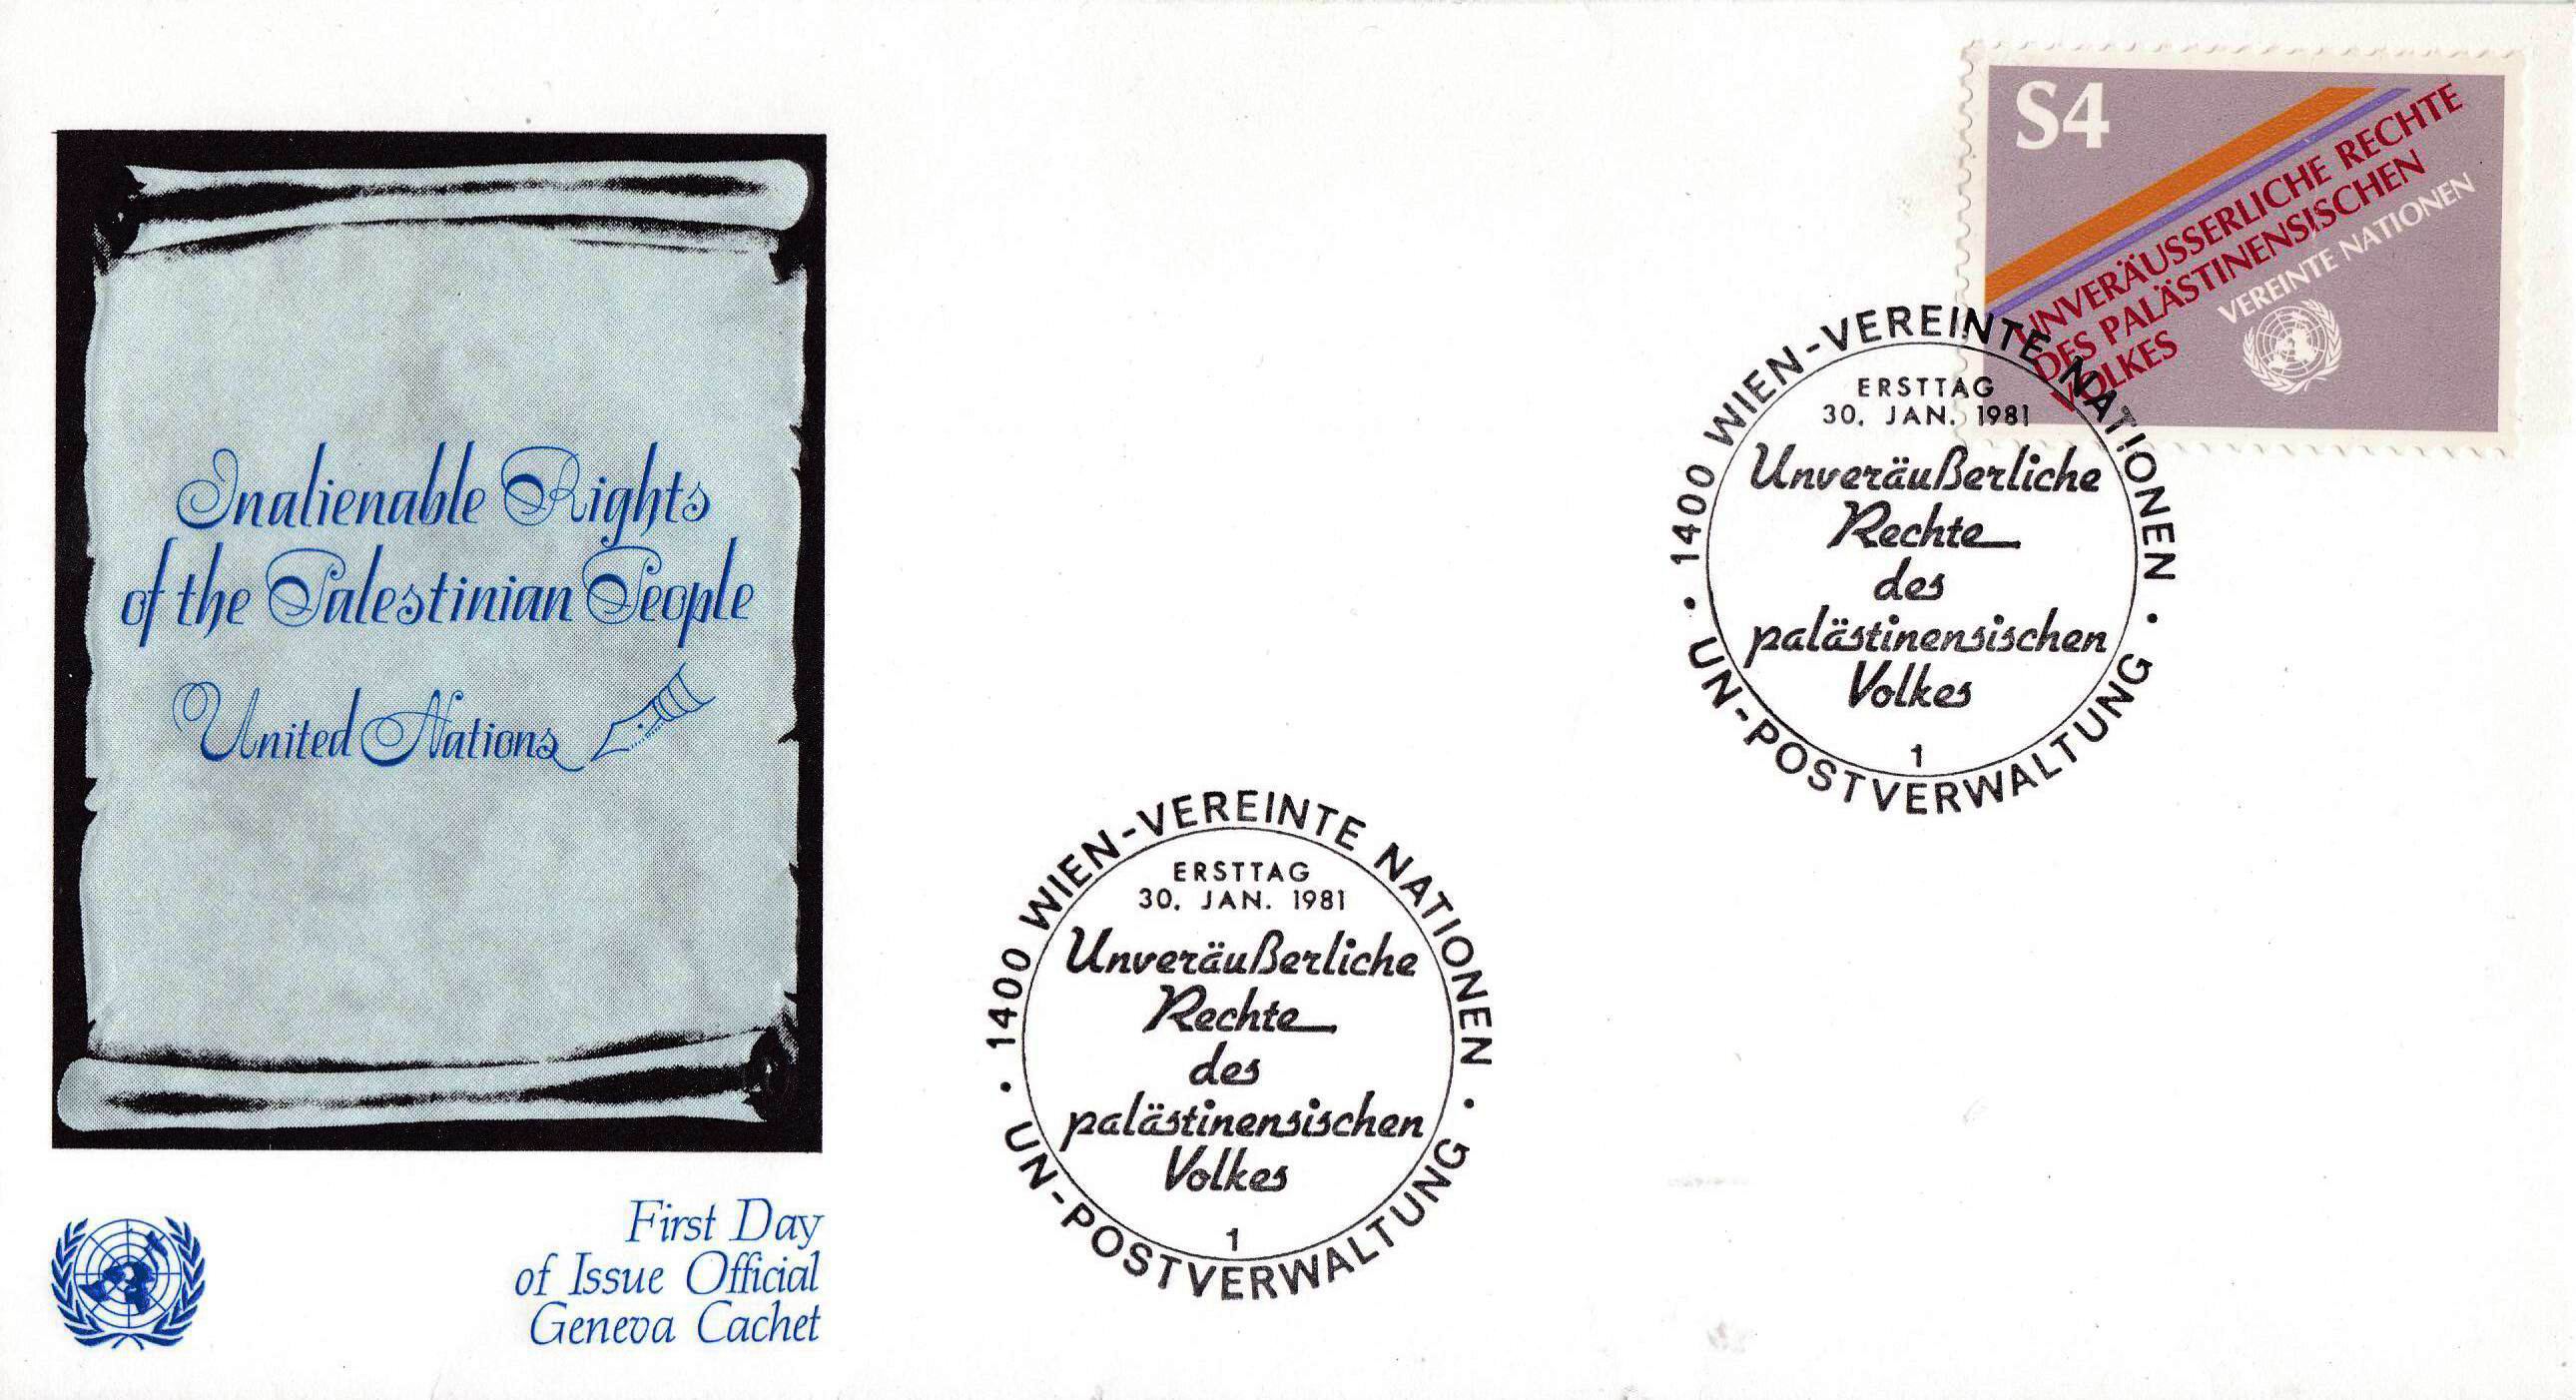 Inalienable Rights
of the Palestinian People
United Nations
First Day
of Issue Official
Geneva Cachet
S4
UNVERÄUSSERLICHE RECHTE
DES PALÄSTINENSISCHEN
VOLKES
VEREINTE NATIONEN
1400 WIEN-VEREINTE NATIONEN
ERSTTAG
30. JAN. 1981
Unveräußerliche
Rechte
des
palästinensischen
Volkes
1
UN-POSTVERWALTUNG
1400 WIEN-VEREINTE NATIONEN
ERSTTAG
30. JAN. 1981
Unveräußerliche
Rechte
des
palästinensischen
Volkes
1
UN-POSTVERWALTUNG